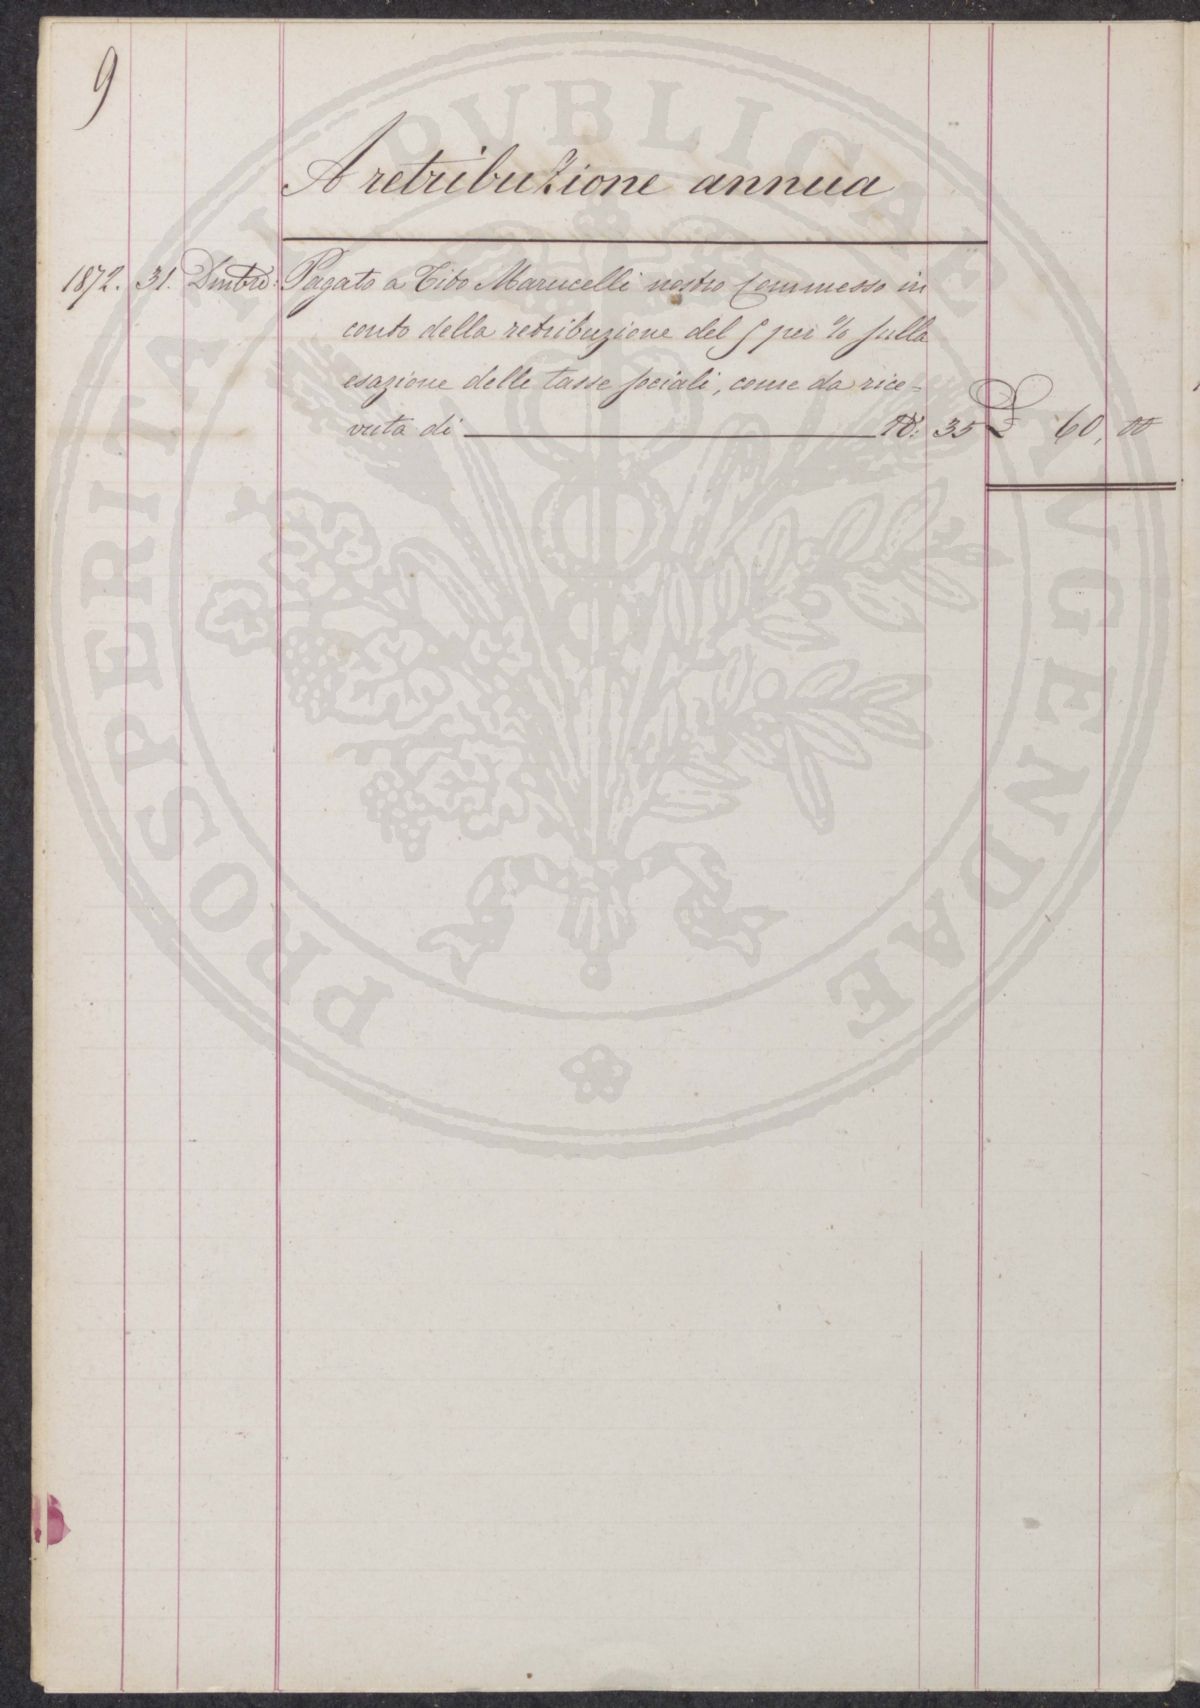 9
A retribuzione annua
1872. 31. Dmbre: Pagato a Tito Marucelli nostro Commesso in
conto della retribuzione del 5 per % sulla
esazione delle tasse sociali, come da rice=
vuta di N: 35 £ 60, 00
PROSPERITATI PVBLICAE AVGENDAE